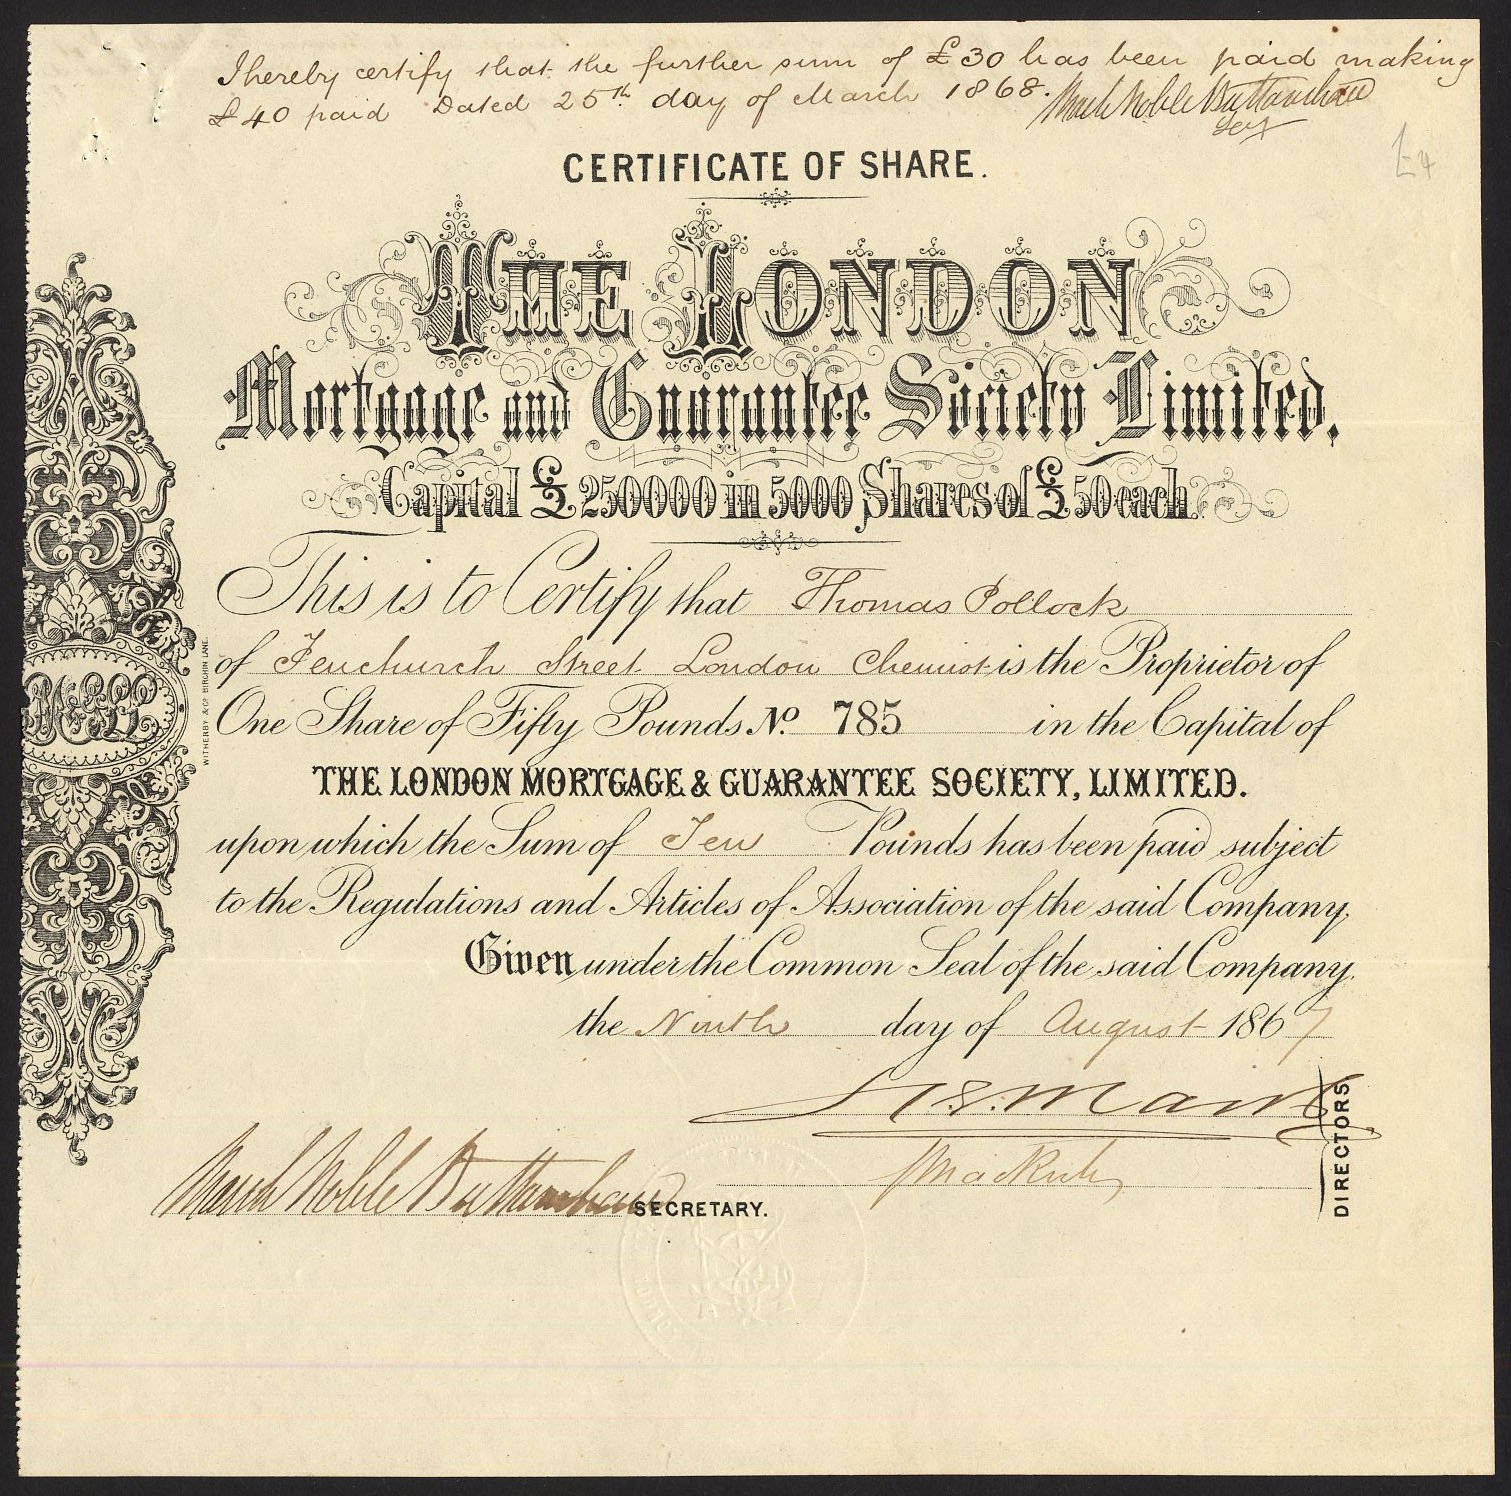 I hereby certify that the further sum of £30 has been paid making
£40 paid Dated 25th day of March 1868. Mark Noble Buttanshaw
Secy
£4
CERTIFICATE OF SHARE.
THE LONDON
Mortgage and Guarantee Society Limited.
Capital £250000 in 5000 Shares of £50 each.
This is to Certify that Thomas Pollock
of Fenchurch Street London Chemist is the Proprietor of
One Share of Fifty Pounds No. 785 in the Capital of
THE LONDON MORTGAGE & GUARANTEE SOCIETY, LIMITED.
upon which the Sum of Ten Pounds has been paid subject
to the Regulations and Articles of Association of the said Company,
Given under the Common Seal of the said Company.
the Ninth day of August 1867
DIRECTORS
Mark Noble Buttanshaw SECRETARY.
WITHERBY & Co. BIRCHIN LANE.